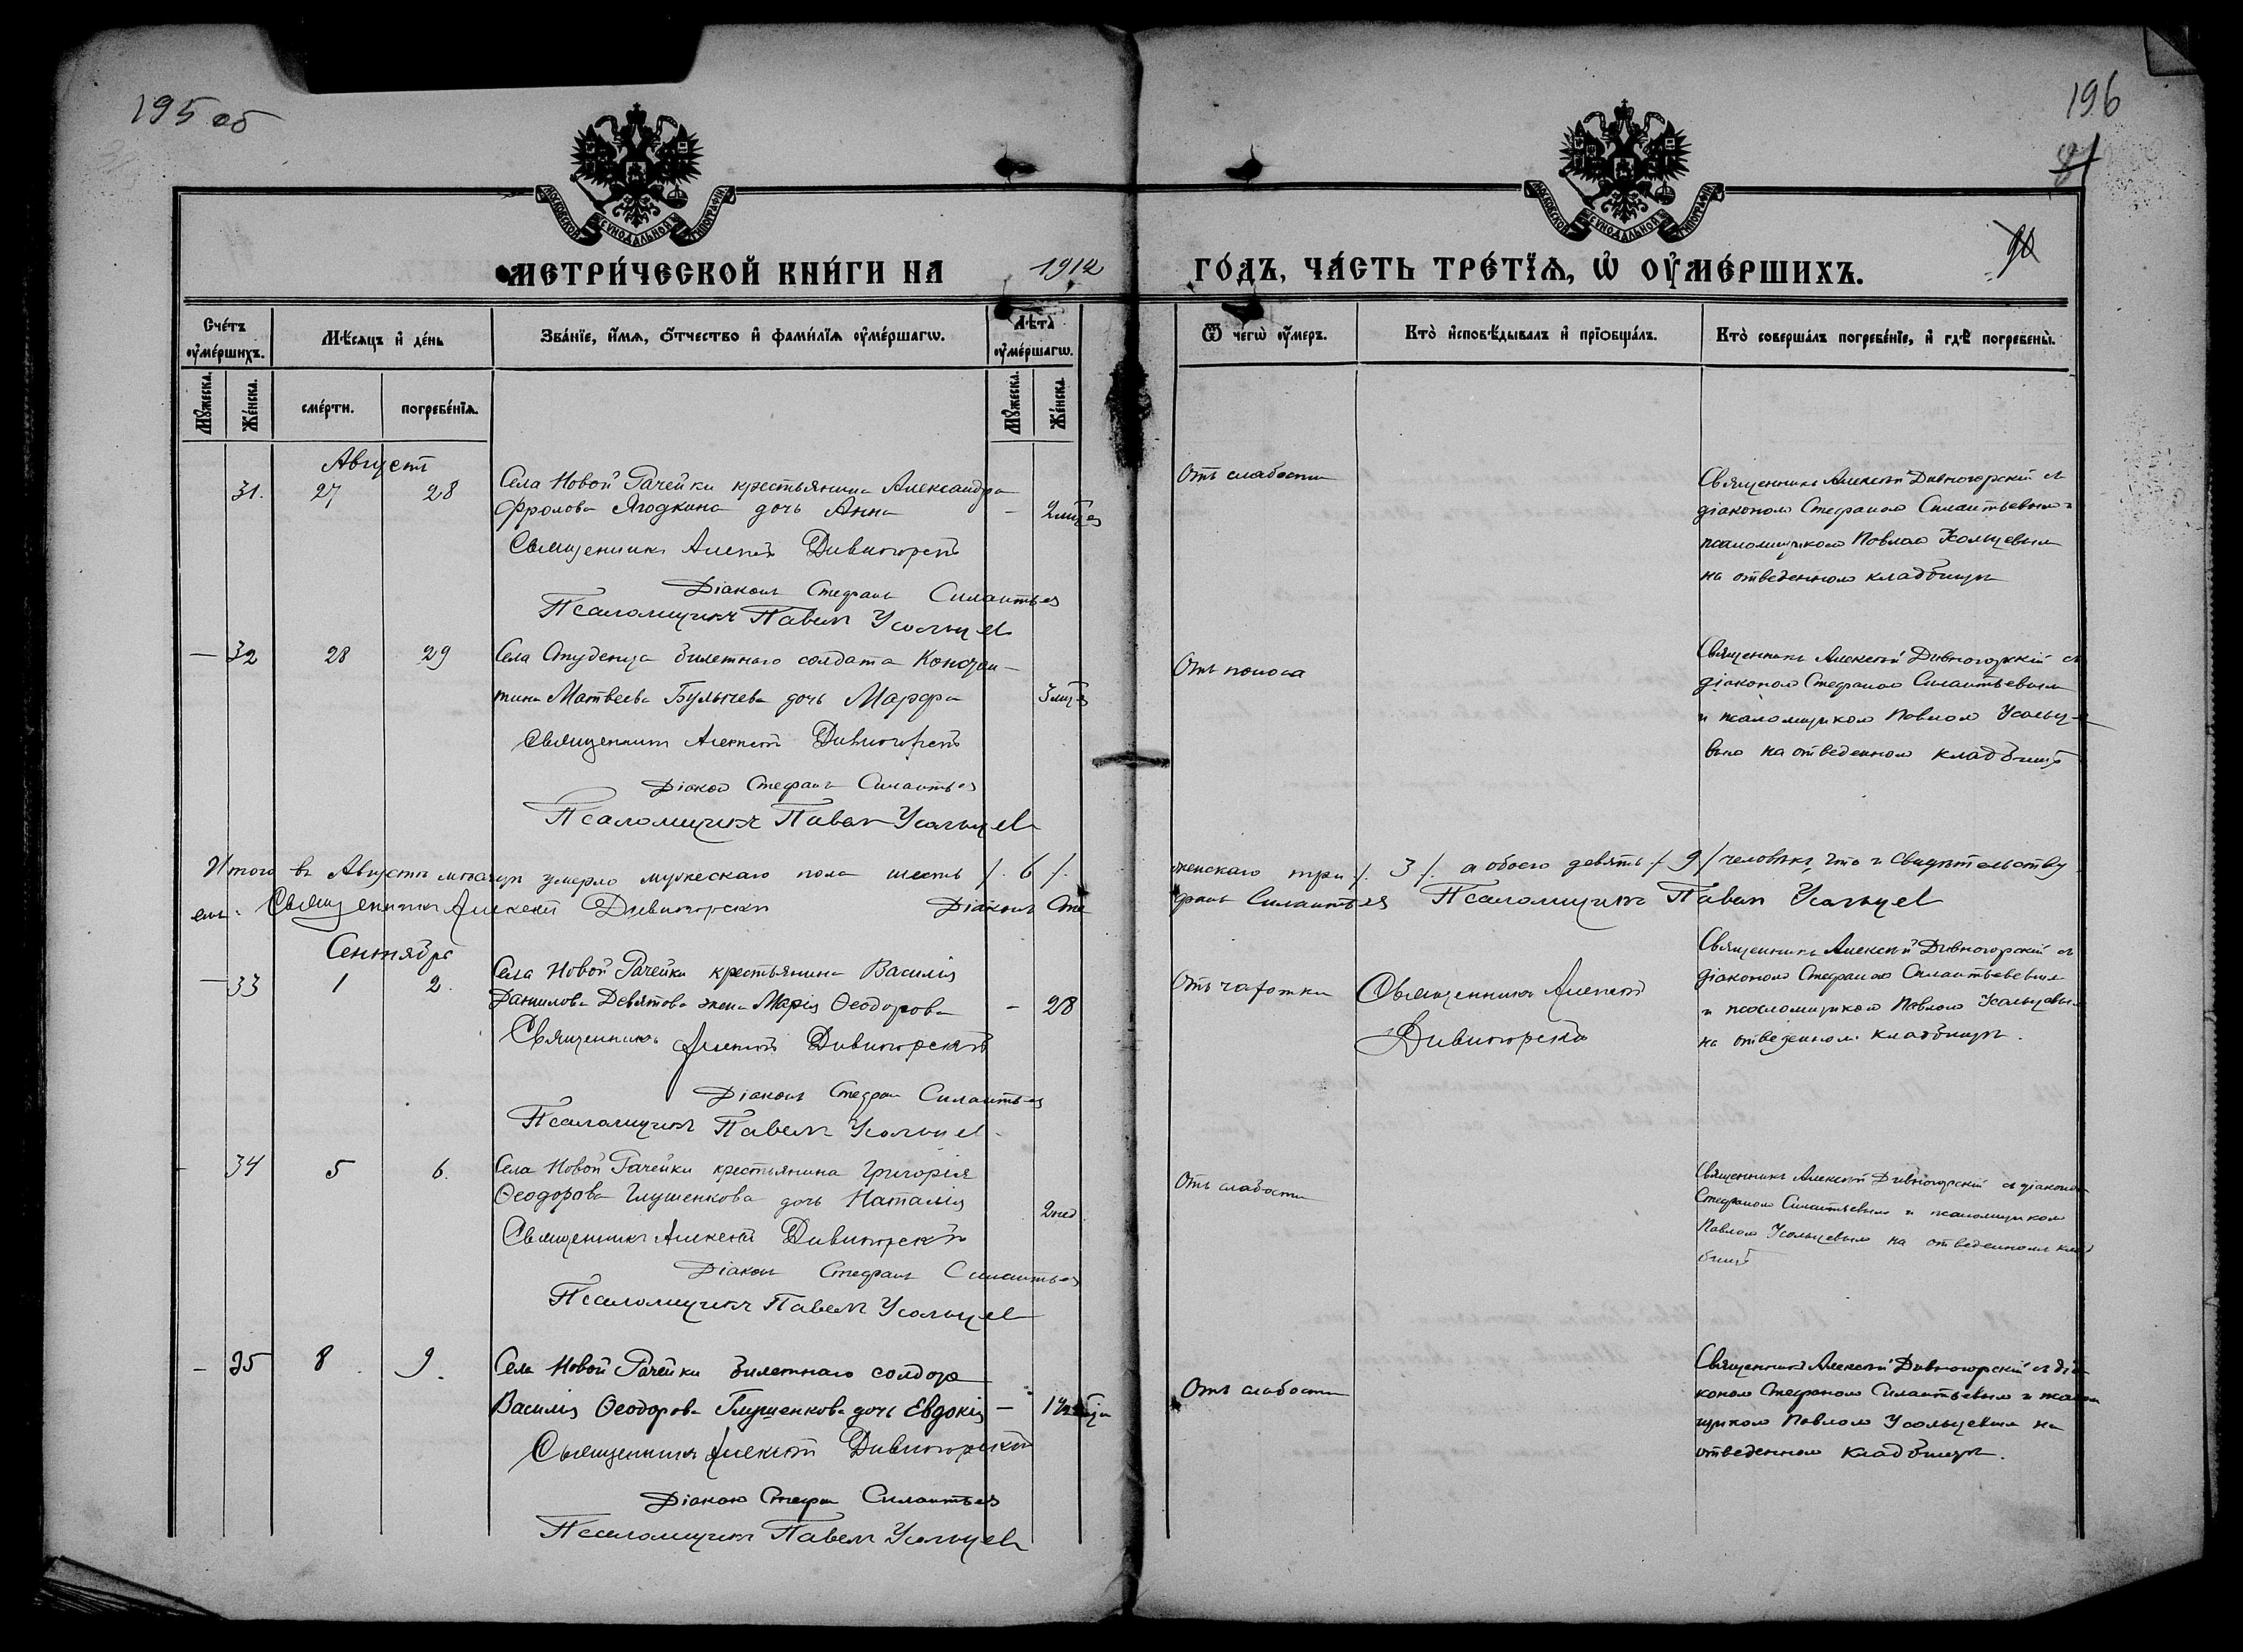 195 об
196
81
90
МОСКОВСКОЙ СѴНОДАЛЬНОЙ ТИПОГРАФІИ
МОСКОВСКОЙ СѴНОДАЛЬНОЙ ТИПОГРАФІИ
МЕТРИ́ЧЕСКОЙ КНИ́ГИ НА 1912 ГО́ДЪ, ЧА́СТЬ ТРЕ́ТЇѦ, Ѡ ОУ҆МЕ́РШИХЪ.
Сче́тъ оу҆ме́ршихъ.
Мѣ́сяцъ и҆ де́нь
Зва́нїе, и҆́мѧ, ѻ҆́тчество и҆ фами́лїѧ оу҆ме́ршагѡ.
Лѣта̀ оу҆ме́ршагѡ.
Ѿ чегѡ̀ оу҆́меръ.
Кто̀ и҆сповѣ́дывалъ и҆ прїѡбща́лъ.
Кто̀ соверша́лъ погребе́нїе, и҆ гдѣ̀ погребены̀.
Мꙋ́жеска.
Же́нска.
сме́рти.
погребе́нїѧ.
Мꙋ́жеска.
Же́нска.
Августъ
31. 27 28
Села Новой Рачейки крестьянина Александра
Фролова Ягодкина дочь Анна – 2 мѣс
Священникъ Алексѣй Дивногорскій
Діаконъ Стефанъ Силантьев
Псаломщикъ Павелъ Усольцев
Отъ слабости
Священникъ Алексѣй Дивногорскій съ
діакономъ Стефаномъ Силантьевымъ и
псаломщикомъ Павломъ Усольцевым
на отведенномъ кладбищѣ
— 32 28 29
Села Студенца билетнаго солдата Констан-
тина Матвеева Булычева дочь Марфа 3 мѣс
Священникъ Алексѣй Дивногорскій
Діаконъ Стефанъ Силантьев
Псаломщикъ Павел Усольцев
Отъ поноса
Священникъ Алексѣй Дивногорскій съ
діакономъ Стефаномъ Силантьевым
и псаломщикомъ Павломъ Усольце-
вымъ на отведенномъ кладбищѣ
Итого въ Августѣ мѣсяцѣ умерло мужескаго пола шесть /. 6 /. женскаго три /. 3 /. а обоего девять / 9 / человѣкъ, что и свидѣтельству
ем: Священникъ Алексѣй Дивногорскій Діаконъ Стефанъ Силантьев Псаломщикъ Павел Усольцев
Сентября
— 33 1 2.
Села Новой Рачейки крестьянина Василія
Данилова Девятова жена Марія Ѳеодорова – 28
Священникъ Алексѣй Дивногорскій
Діаконъ Стефан Силантьев
Псаломщикъ Павелъ Усольцев
Отъ чахотки
Священникъ Алексѣй
Дивногорскій
Священникъ Алексѣй Дивногорскій съ
діакономъ Стефаномъ Силантьевым
и псаломщикомъ Павломъ Усольцевым
на отведенном кладбищѣ.
- 34 5 6.
Села Новой Рачейки крестьянина Григорія
Ѳеодорова Глушенкова дочь Наталія 2 нед.
Священникъ Алексѣй Дивногорскій
Діаконъ Стефанъ Силантьев
Псаломщикъ Павелъ Усольцев
Отъ слабости
Священникъ Алексѣй Дивногорскій съ діакономъ
Стефаномъ Силантьевымъ и псаломщикомъ
Павломъ Усольцевымъ на отведенномъ клад
бищѣ
– 35 8 9.
Села Новой Рачейки билетнаго солдата
Василія Ѳеодорова Глушенкова дочь Евдокія –
Священникъ Алексѣй Дивногорскій
Діаконъ Стефан Силантьев
Псаломщикъ Павелъ Усольцев
Отъ слабости
Священникъ Алексѣй Дивногорскій съ діа
кономъ Стефаномъ Силантьевым и псалом
щикомъ Павломъ Усольцевым на
отведенномъ кладбищѣ.